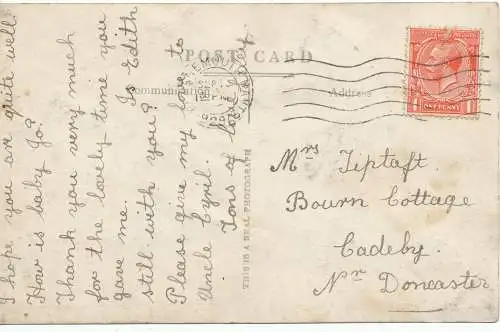 POST CARD
Communication
Address
I hope you are quite well.
How is baby Jo?
Thank you very much
for the lovely time you
gave me. Is Edith
still with you?
Please give my love to
Uncle Cyril.
Tons of love
THIS IS A REAL PHOTOGRAPH
Mrs Tiptaft
Bourn Cottage
Cadeby.
Nr Doncaster
ONE PENNY